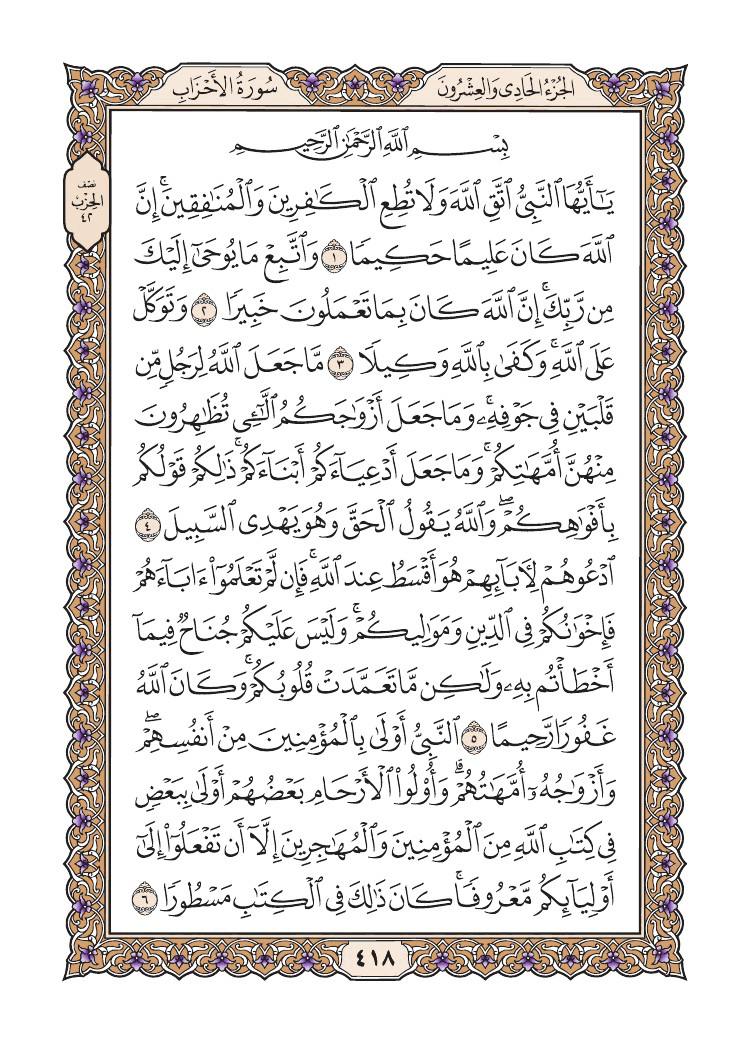 الجُزْءُ الحَادِي وَالعِشْرُونَ
سُورَةُ الأَحْزَابِ
نصف
الحِزْب
٤٢
بِسْمِ ٱللَّهِ ٱلرَّحْمَٰنِ ٱلرَّحِيمِ
يَٰٓأَيُّهَا ٱلنَّبِيُّ ٱتَّقِ ٱللَّهَ وَلَا تُطِعِ ٱلْكَٰفِرِينَ وَٱلْمُنَٰفِقِينَۚ إِنَّ
ٱللَّهَ كَانَ عَلِيمًا حَكِيمٗا ١ وَٱتَّبِعْ مَا يُوحَىٰٓ إِلَيْكَ
مِن رَّبِّكَۚ إِنَّ ٱللَّهَ كَانَ بِمَا تَعْمَلُونَ خَبِيرٗا ٢ وَتَوَكَّلْ
عَلَى ٱللَّهِۚ وَكَفَىٰ بِٱللَّهِ وَكِيلٗا ٣ مَّا جَعَلَ ٱللَّهُ لِرَجُلٖ مِّن
قَلْبَيْنِ فِي جَوْفِهِۦۚ وَمَا جَعَلَ أَزْوَٰجَكُمُ ٱلَّٰٓـِٔي تُظَٰهِرُونَ
مِنْهُنَّ أُمَّهَٰتِكُمْۚ وَمَا جَعَلَ أَدْعِيَآءَكُمْ أَبْنَآءَكُمْۚ ذَٰلِكُمْ قَوْلُكُم
بِأَفْوَٰهِكُمْۖ وَٱللَّهُ يَقُولُ ٱلْحَقَّ وَهُوَ يَهْدِي ٱلسَّبِيلَ ٤
ٱدْعُوهُمْ لِأٓبَآئِهِمْ هُوَ أَقْسَطُ عِندَ ٱللَّهِۚ فَإِن لَّمْ تَعْلَمُوٓا۟ ءَابَآءَهُمْ
فَإِخْوَٰنُكُمْ فِي ٱلدِّينِ وَمَوَٰلِيكُمْۚ وَلَيْسَ عَلَيْكُمْ جُنَاحٞ فِيمَآ
أَخْطَأْتُم بِهِۦ وَلَٰكِن مَّا تَعَمَّدَتْ قُلُوبُكُمْۚ وَكَانَ ٱللَّهُ
غَفُورٗا رَّحِيمًا ٥ ٱلنَّبِيُّ أَوْلَىٰ بِٱلْمُؤْمِنِينَ مِنْ أَنفُسِهِمْۖ
وَأَزْوَٰجُهُۥٓ أُمَّهَٰتُهُمْۗ وَأُو۟لُوا۟ ٱلْأَرْحَامِ بَعْضُهُمْ أَوْلَىٰ بِبَعْضٖ
فِي كِتَٰبِ ٱللَّهِ مِنَ ٱلْمُؤْمِنِينَ وَٱلْمُهَٰجِرِينَ إِلَّآ أَن تَفْعَلُوٓا۟ إِلَىٰٓ
أَوْلِيَآئِكُم مَّعْرُوفٗاۚ كَانَ ذَٰلِكَ فِي ٱلْكِتَٰبِ مَسْطُورٗا ٦
٤١٨